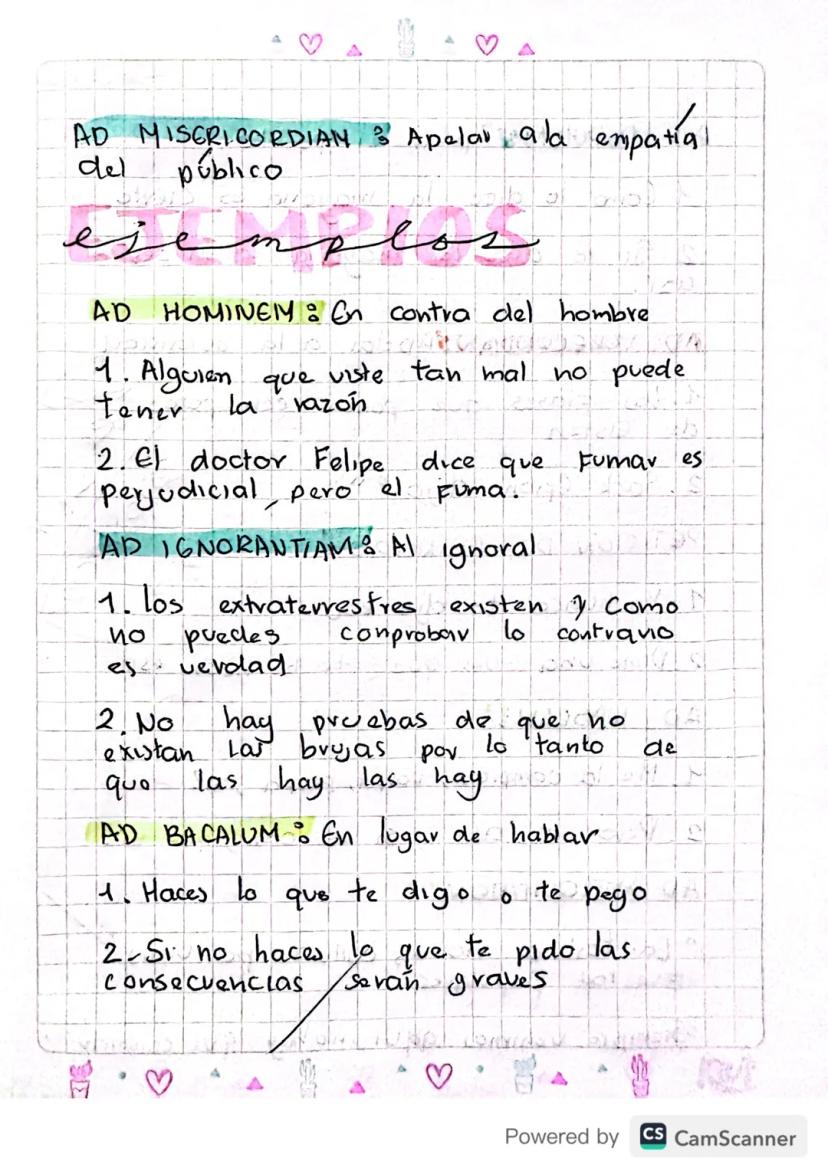 AD MISERICORDIAM: Apelar a la empatía
del público
EJEMPlOS
ejemplos
AD HOMINEM: En contra del hombre
1. Alguien que viste tan mal no puede
tener la razón
2. El doctor Felipe dice que Fumar es
perjudicial, pero el Fuma.
AD IGNORANTIAM: Al ignoral
1. los extraterrestres existen y como
no puedes conprobar lo contrario
es verdad
2. No hay pruebas de que no
existan las brujas por lo tanto de
que las hay las hay
AD BACALUM: En lugar de hablar
1. Haces lo que te digo o te pego
2- Si no haces lo que te pido las
consecuencias serán graves
Powered by CS CamScanner